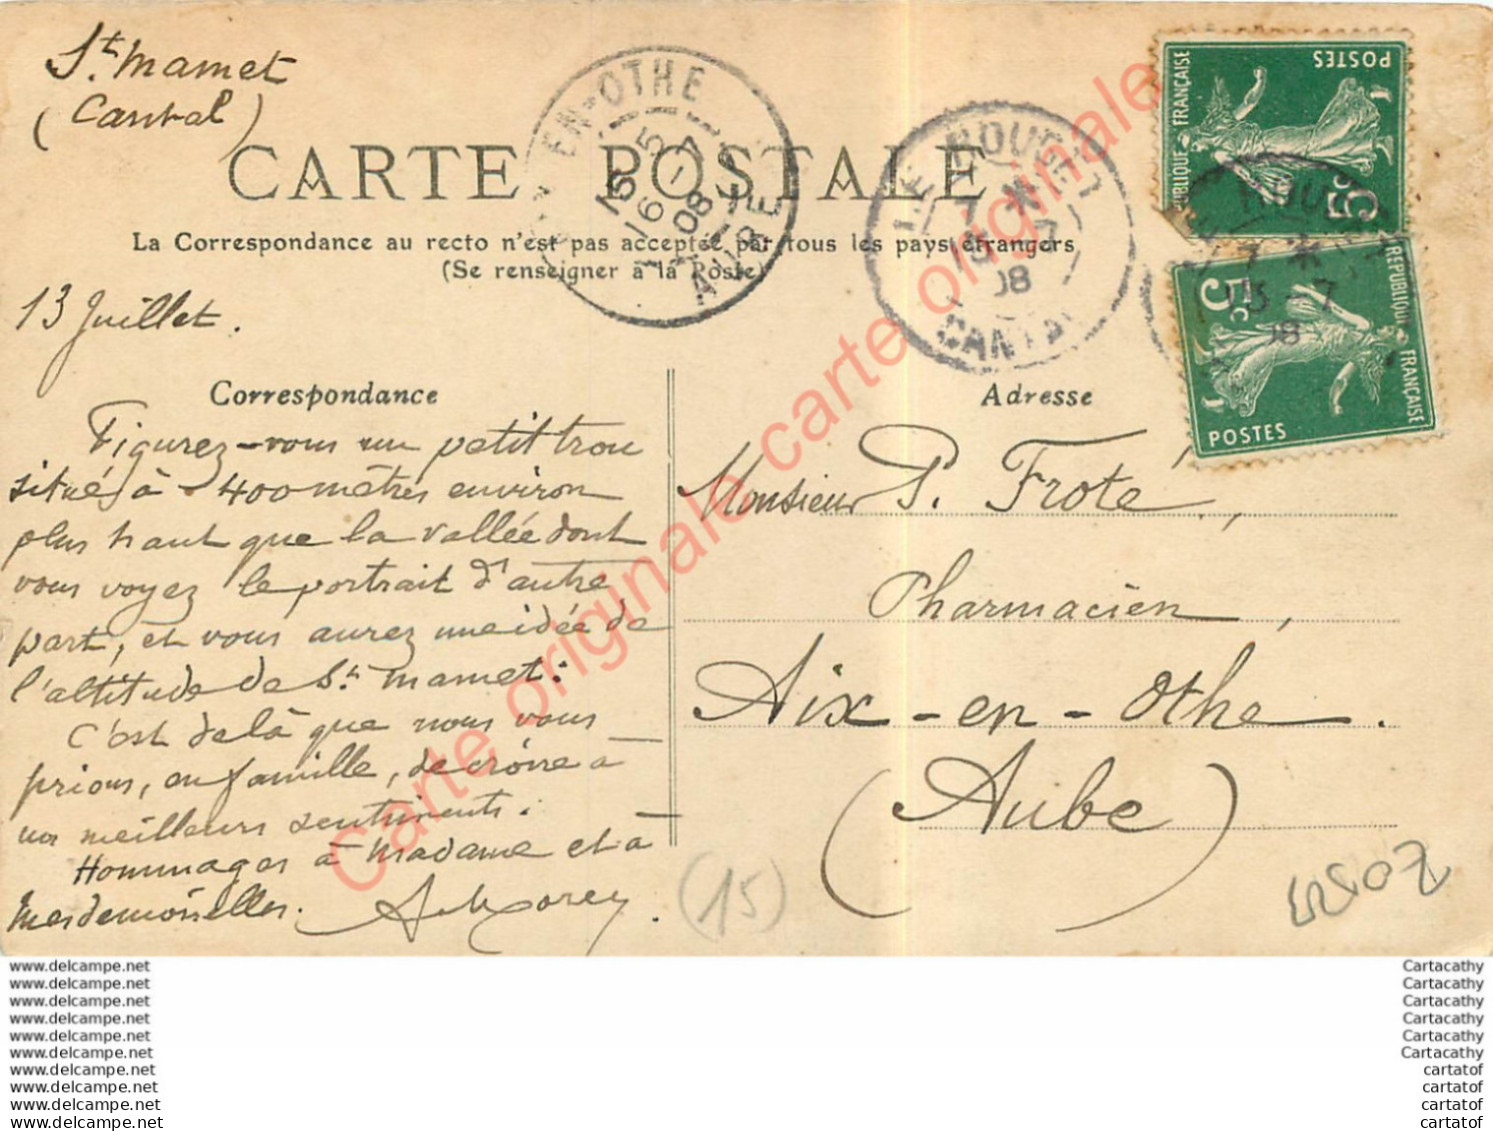 St. Mamet
(Cantal)
CARTE POSTALE
La Correspondance au recto n'est pas acceptée par tous les pays étrangers
(Se renseigner à la Poste)
EN-OTHE
15 5
16-7
08
AUBE
LE ROUGET
7 *
15 -7
08
CANTAL
RÉPUBLIQUE FRANÇAISE
POSTES
5c
RÉPUBLIQUE FRANÇAISE
POSTES
5c
ROUGET
7 *
15 -7
08
13 Juillet.
Correspondance
Figurez-vous un petit trou
situé à 400 mètres environ
plus haut que la vallée dont
vous voyez le portrait d'autre
part, et vous aurez une idée de
l'altitude de St. Mamet.
C'est de là que nous vous
prions, en famille, de croire à
nos meilleurs sentiments.
Hommages à Madame et à
Mesdemoiselles.
Adresse
Monsieur P. Froté,
Pharmacien,
Aix-en-Othe.
(Aube)
(15)
Carte originale carte originale
www.delcampe.net
www.delcampe.net
www.delcampe.net
www.delcampe.net
www.delcampe.net
www.delcampe.net
www.delcampe.net
www.delcampe.net
www.delcampe.net
www.delcampe.net
Cartacathy
Cartacathy
Cartacathy
Cartacathy
Cartacathy
Cartacathy
cartatof
cartatof
cartatof
cartatof